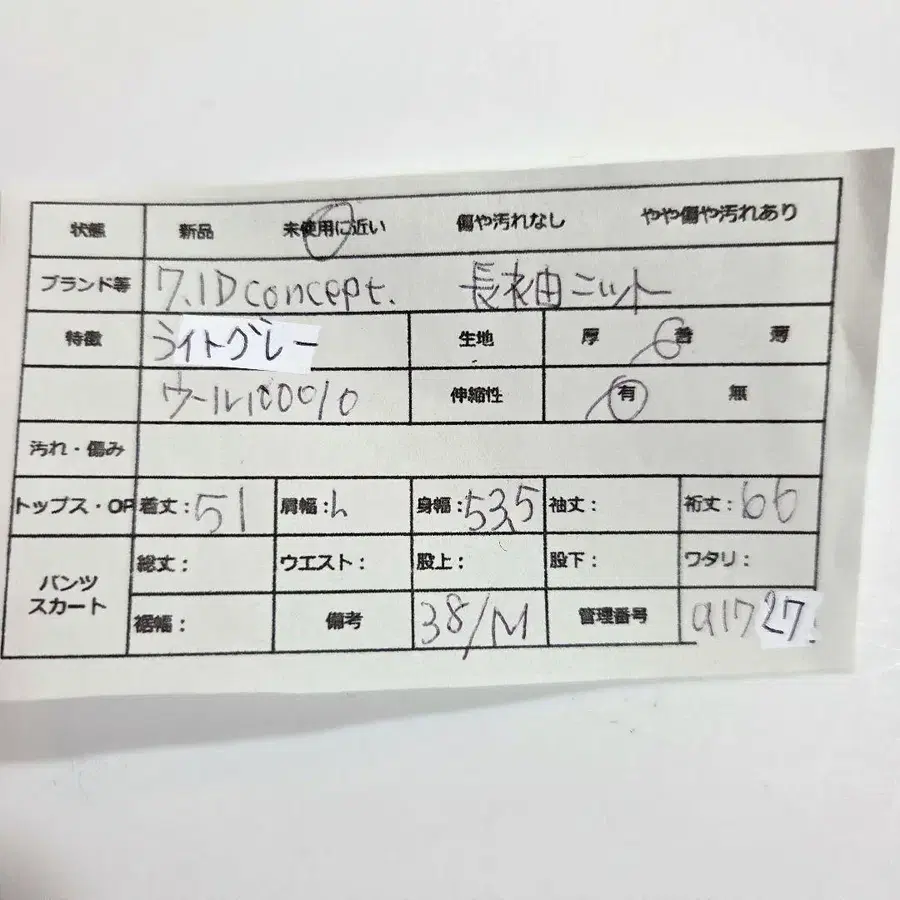 状態 新品 未使用に近い 傷や汚れなし やや傷や汚れあり
ブランド等 7.1Dconcept. 長袖ニット
特徴 ライトグレー 生地 厚 普 薄
ウール100% 伸縮性 有 無
汚れ・傷み
トップス・OP 着丈：51 肩幅： 身幅：53.5 袖丈： 裄丈：66
パンツ スカート 総丈： ウエスト： 股上： 股下： ワタリ：
裾幅： 備考 38/M 管理番号 a1727